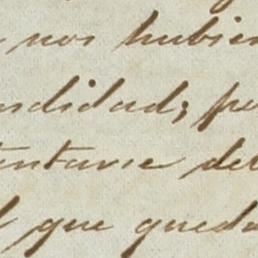 nos hubier
ndidad; po
entarse del
que queda